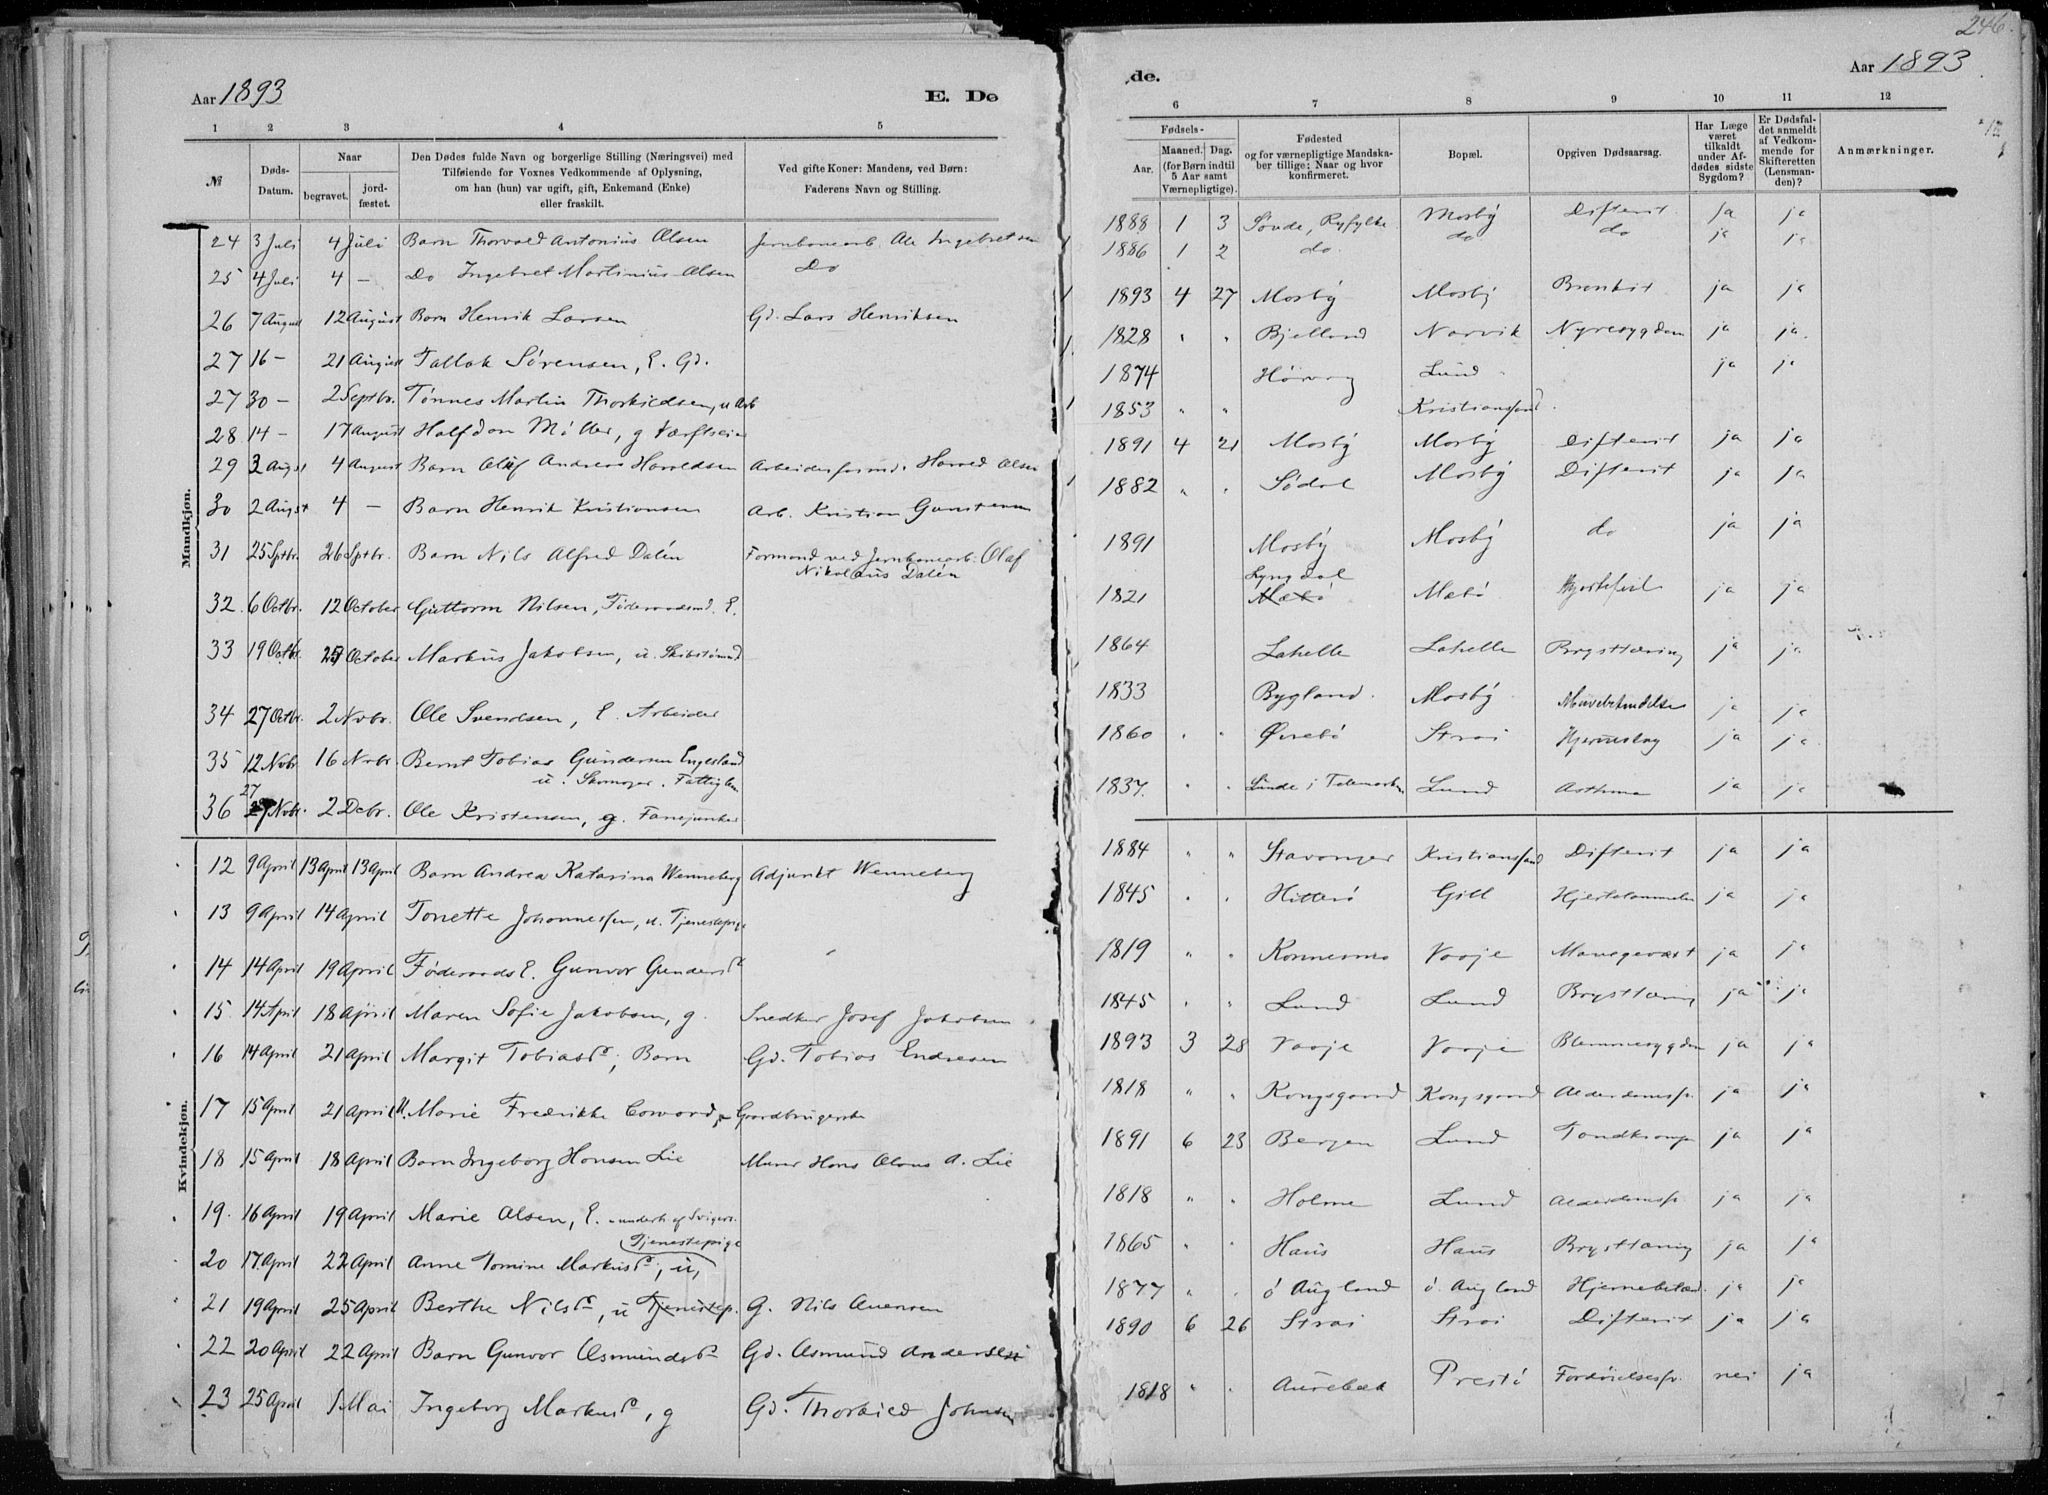 246.
Aar 1893
E. Dø
de.
Aar 1893
1 2 3 4 5
6 7 8 9 10 11 12
№
Døds-Datum.
Naar
begravet.
jordfæstet.
Den Dødes fulde Navn og borgerlige Stilling (Næringsvei) med
Tilføiende for Voxnes Vedkommende af Oplysning,
om han (hun) var ugift, gift, Enkemand (Enke)
eller fraskilt.
Ved gifte Koner: Mandens, ved Børn:
Faderens Navn og Stilling.
Fødsels-
Aar.
Maaned. Dag.
(for Børn indtil
5 Aar samt
Værnepligtige).
Fødested
og for værnepligtige Mandskaber tillige: Naar og hvor
konfirmeret.
Bopæl.
Opgiven Dødsaarsag.
Har Læge
været
tilkaldt
under Afdødes sidste
Sygdom?
Er Dødsfaldet anmeldt
af Vedkommende for
Skifteretten
(Lensmanden)?
Anmærkninger.
Mandkjøn.
24 3 Juli 4 Juli Barn Thorvald Antonius Olsen Jernbanearb. Ole Ingebretsen 1888 1 3 Sovde, Ryfylke Mosby Difterit Ja ja
25 4 Juli 4 – Do Ingebret Martinius Olsen Do 1886 1 2 do. do do ja ja
26 7 August 12 August Barn Henrik Larsen Gd. Lars Henriksen 1893 4 27 Mosby Mosby Bronkit ja ja
27 16 – 21 August Tallak Sørensen, E. Gd. 1828 " " Bjelland Narvik Nyresygdom ja ja.
27 30 – 2 Septbr. Tønnes Martin Thorkildsen, u Arb 1874 Høivag Lund ja ja
28 14 – 17 August Halfdan Møller, g Værftseier 1853 " " Kristianssand.
29 3 Augst 4 August Barn Oluf Andreas Haraldsen Arbeidsformd. Harald Olsen 1891 4 21 Mosby Mosby Difterit ja ja
30 2 Augst 4 – Barn Henrik Kristiansen Arb. Kristian Gunstensen 1882 " " Sødal Mosby Difterit ja ja
31 25 Sptbr. 26 Sptbr. Barn Nils Alfred Dalén Formand ved Jernbanearb. Olaf Nikolaus Dalén 1891 Mosby Mosby do ja ja
32. 6 Octbr. 12 October Guttorm Nilsen, Føderaadsmd. E. 1821 Lyngdal Mæbø Mæbø Hjertefeil ja ja
33 19 Octbr. 25 October Markus Jakobsen, u. Skibstømmd 1864 Lahelle Lahelle Brysttæring ja ja
34 27 Octbr. 2 Novbr. Ole Svendsen, E. Arbeider 1833 Bygland. Mosby Mavebetændelse ja ja
35 12 Novbr 16 Novbr. Bernt Tobias Gundersen Engesland u. Skomager. Fattiglem 1860 " " Øvrebø Strai Hjerneslag ja ja
36 27 Novbr. 2 Decbr. Ole Kristensen, g. Fanejunker 1837. " " Lunde i Telemarken Lund Asthma ja ja
Kvindekjøn.
12 9 April 13 April 13 April Barn Andrea Katarina Wenneberg Adjunkt Wenneberg 1884 " " Stavanger Kristianssand Difterit ja ja
13 9 April 14 April Tonette Johannessen, u. Tjenestepige 1845 " " Hitterø Gill ja ja
14 14 April 19 April Føderaads E. Gunvor Gundersd 1819 " " Konnesmo Vraaje Mavegevæxt ja ja
15. 14 April 18 April Maren Sofie Jakobsen, g. Snedker Josef Jakobsen 1845 " " Lund Lund Brysttæring ja ja
16 14 April 21 April Margit Tobiasd, Barn Gd. Tobias Endresen 1893 3 28 Vraaje Vraaje ja ja
17 15 April 21 April U. Marie Fredrikke Coward, Gaardbrugerske 1818 " " Kongsgaard Kongsgaard Alderdomssv. ja ja
18 15 April 18 April Barn Ingeborg Hansen Lie Murer Hans Olaus A. Lie 1891 6 23 Bergen Lund Tandkrampe ja ja
19. 16 April 19 April Marie Olsen, E. underh. af Svigers. 1818 " " Holme Lund Alderdomssv. ja ja
20 17. April 22 April Anne Tomine Markusd, u, Tjenestepige 1865 " " Haus Haus Brysttæring ja ja
21 19 April 25 April Berthe Nilsd, u Tjenestep. G. Nils Auensen 1877 " " ó Augland ó. Augland Hjernebetænd. ja ja
22 20 April 22 April Barn Gunvor Osmundsd Gd. Osmund Andersen 1890 6 26 Strai Strai Difterit ja ja
23 25 April 1 Mai Ingeborg Markusd, g Gd. Thorkild Johnsen 1818 " " Aurebæk Prestø nei ja